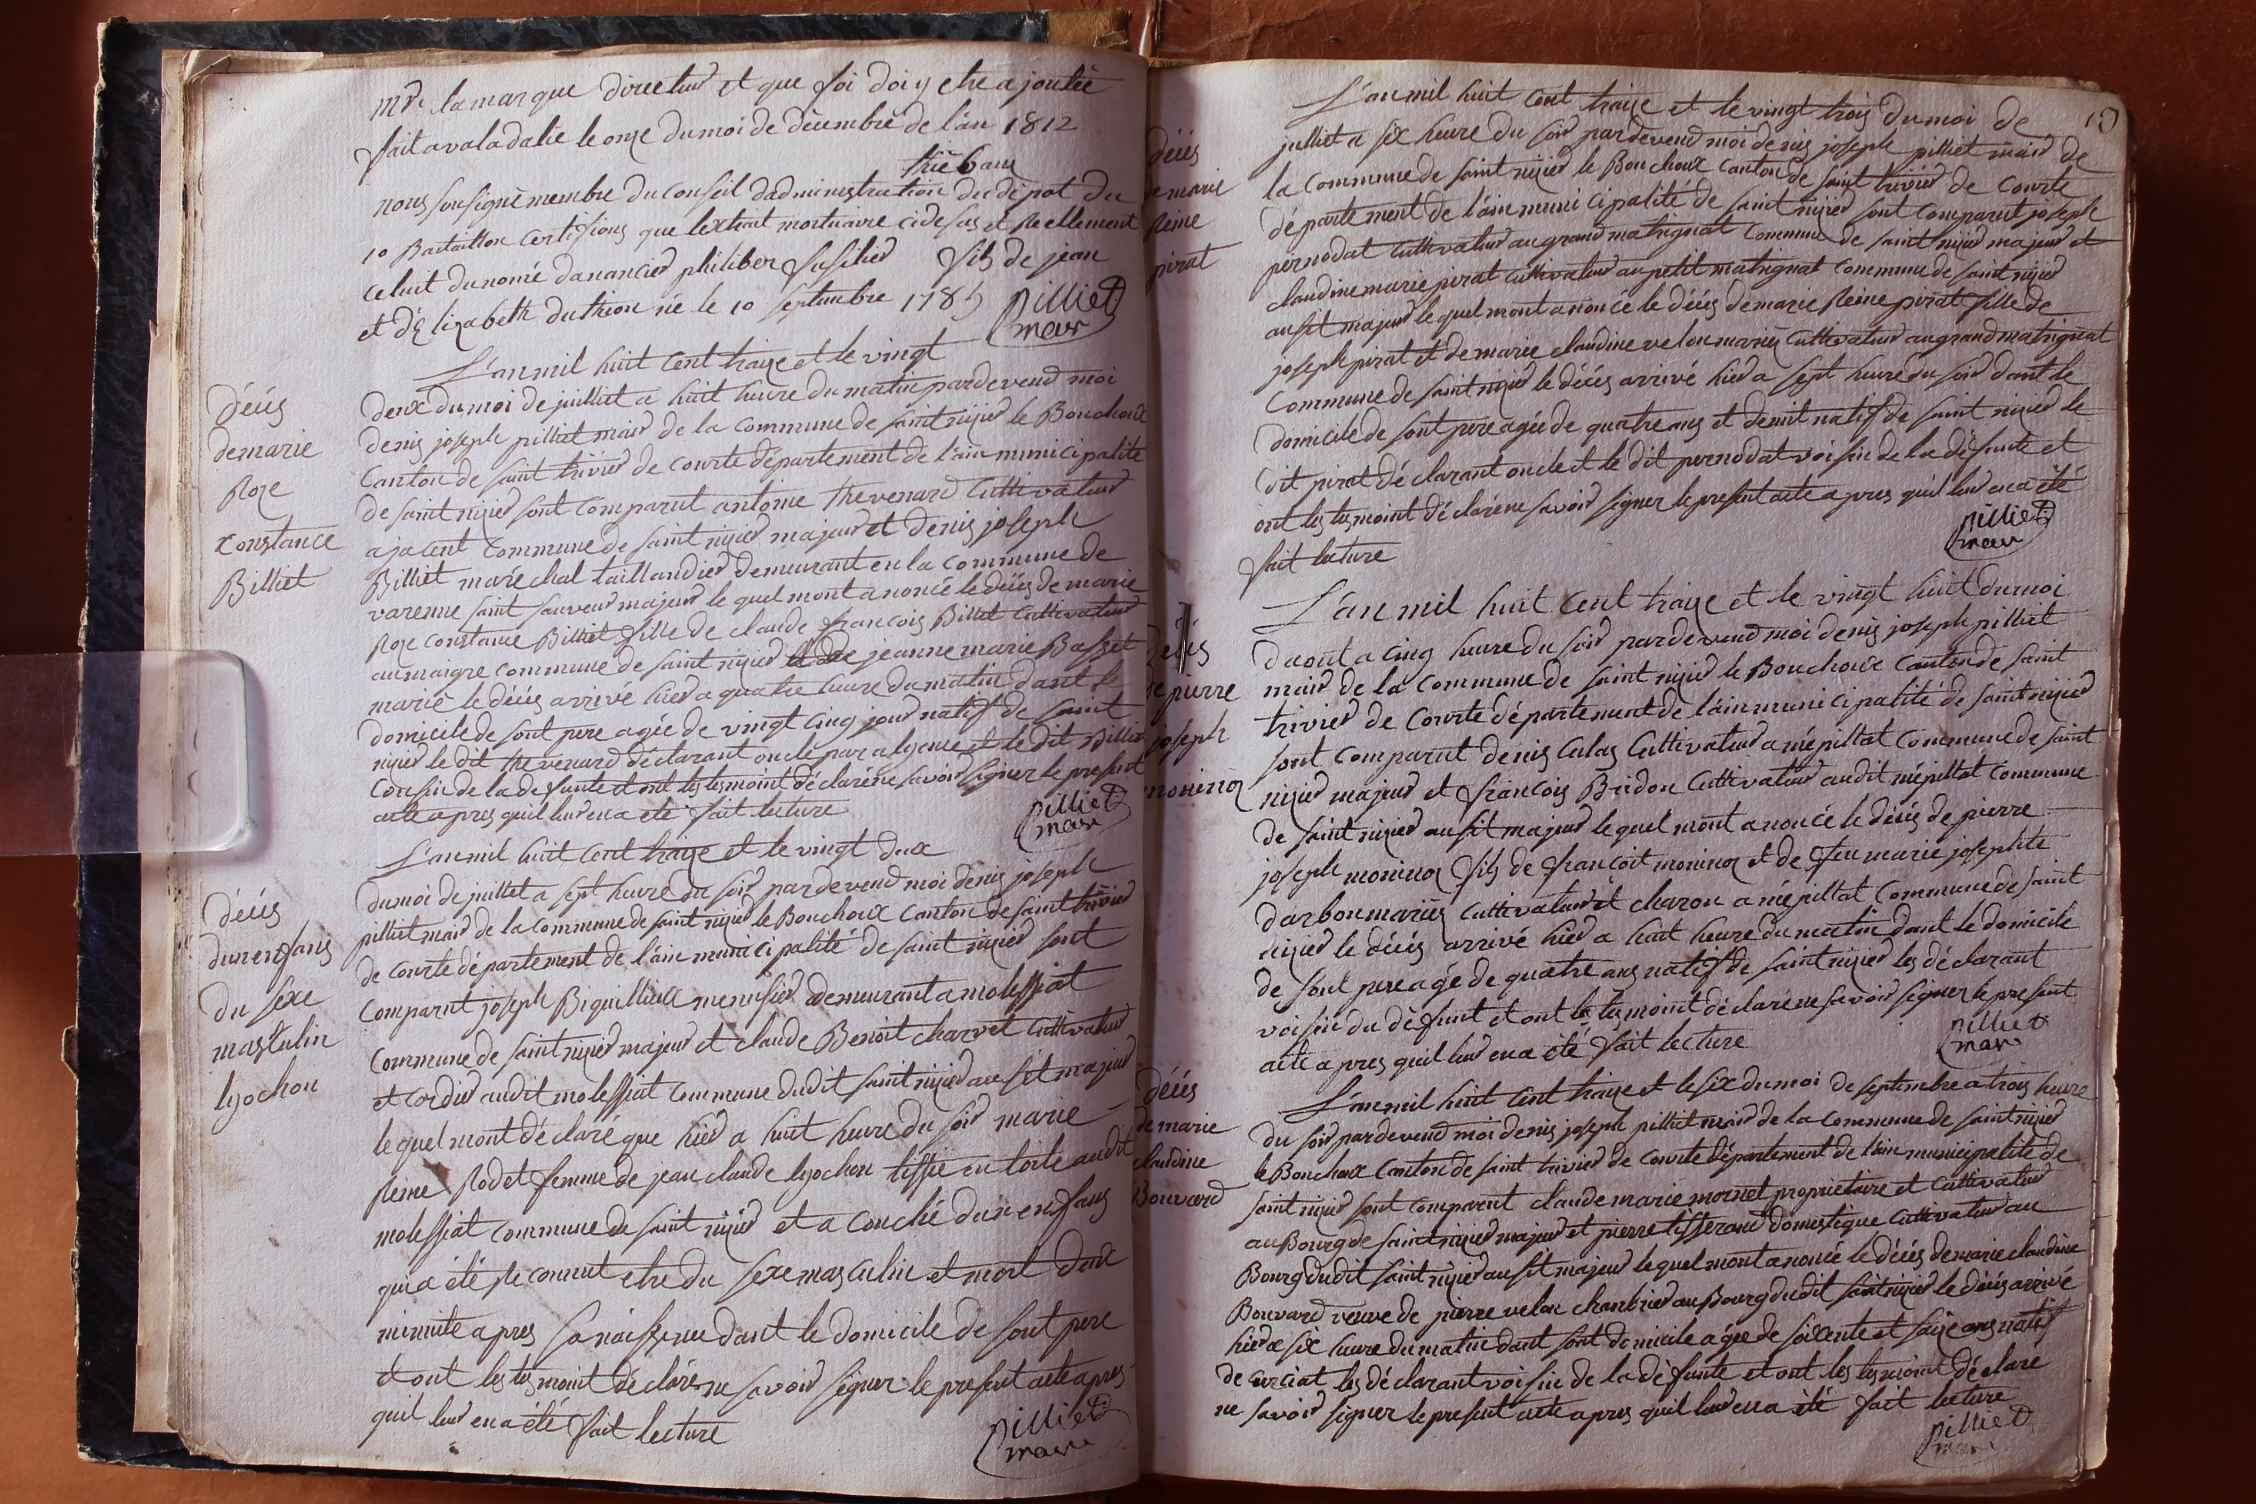 mr. lamarque directeur et que foi doi y etre ajoutée
fait a valadalie le onze du moi de décembre de l'an 1812
nous sousigné membre du conseil dadministration du dépot du
10 Bataillon certifions que lextrait mortuaire ci desus et reellement
celuit du nomé danancier philiber fusilier fils de jean
et délizabeth duthion né le 10 septembre 1785
pilliet
mair
L'an mil huit cent traize et le vingt
deux du moi de juilliet a huit heure du matin pardevend moi
denis joseph pilliet mair de la commune de saint nizier le Bouchoux
Canton de saint trivier de courte département de l'ain municipalité
de saint nizier sont comparut antoine thevenard cultivateur
ajacent commune de saint nizier majeur et denis joseph
Billiet maréchal taillandier demeurant en la commune de
varenne saint sauveur majeur le quel mont anoncé le décés de marie
Roze constance Billiet fille de claude francois Billiet cultivateur
au maigre commune de saint nizier et de jeanne marie Basset
marié le décés arrivé hier a quatre heure du matin dant le
domicile de sont pere agée de vingt cinq jour natif de saint
nizier le dit thevenard déclarant oncle par alyence et le dit Billiet
cousin de la defunte et ont les tesmoint déclaré ne savoir signer le present
acte apres quil leur en a eté fait lecture
pilliet
mair
décés
de marie
Roze
constance
Billiet
L'an mil huit cent traize et le vingt deux
du moi de juillet a sept heure du soir pardevend moi denis joseph
pilliet mair de la commune de saint nizier le Bouchoux canton de saint trivier
de courte département de l'ain municipalité de saint nizier sont
comparut joseph Biguillieux menusier demeurant a molessiat
commune de saint nizier majeur et claude Benoit charvet cultivateur
et cordier audit molessiat commune dudit saint nizier ausit majeur
le quel mont déclaré que hier a huit heure du soir marie
Reine Rodet femme de jean claude lyochon tissié en toile audit
molessiat commune de saint nizier et a couché dun enfans
qui a été reconnut etre du sexe masculin et mort deux
minute apres sa naissance dant le domicile de sont pere
et ont les tesmoint déclaré ne savoir signer le present acte apres
quil leur en a été fait lecture
pilliet
mair
décés
dun enfans
du sexe
masculin
lyochon
L'an mil huit cent traize et le vingt trois du moi de
julliet a six heure du soir pardevend moi denis joseph pilliet mair de
la commune de saint nizier le Bouchoux canton de saint trivier de courte
département de l'ain municipalité de saint nizier sont comparut joseph
pernodat cultivateur au grand matrignat commune de saint nizier majeur et
claudine marie pirat cultivateur au petit matrignat commune de saint nizier
ausit majeur le quel mont anoncé le décés de marie Reine pirat fille de
joseph pirat et de marie claudine velon mariés cultivateur au grand matrignat
commune de saint nizier le décés arrivé hier a sept heure du soir dant le
domicile de sont pere agée de quatre ans et demit natif de saint nizier le
dit pirat déclarant oncle et le dit pernodat voisin de la defunte et
ont les tesmoint déclaré ne savoir signer le present acte apres quil leur en a été
fait lecture
pilliet
mair
décés
de marie
Reine
pirat
L'an mil huit cent traize et le vingt huit du moi
daout a cinq heure du soir pardevend moi denis joseph pilliet
mair de la commune de saint nizier le Bouchoux canton de saint
trivier de courte département de lain municipalité de saint nizier
sont comparut denis culas cultivateur a mépillat commune de saint
nizier majeur et francois Bridon cultivateur audit mépillat commune
de saint nizier ausit majeur le quel mont anoncé le décés de pierre
joseph moninoz fils de francoit moninoz et de feu marie josephte
darbon mariés cultivateur et charon a mépillat commune de saint
nizier le décés arrivé hier a huit heure du matin dant le domicile
de sont pere agé de quatre ans natif de saint nizier les déclarant
voisin du défunt et ont les tesmoint déclaré ne savoir signer le present
acte apres quil leur en a été fait lecture
pilliet
mair
décés
de pierre
joseph
moninoz
L'an mil huit cent traize et le six du moi de septembre a trois heure
du soir pardevend moi denis joseph pilliet mair de la commune de saint nizier
le Bouchoux canton de saint trivier de courte département de l'ain municipalité de
saint nizier sont comparut claude marie mornet propriétaire et cultivateur
au Bourg de saint nizier majeur et pierre tisserand domestique cultivateur au
Bourg dudit saint nizier ausit majeur le quel mont anoncé le décés de marie claudine
Bouvard veuve de pierre velon chanbrier au Bourg dudit saint nizier le décés arrivé
hier a six heure du matin dant sont domicile agée de soixente et saize ans natif
de curciat les déclarant voisin de la défunte et ont les tesmoint déclaré
ne savoir signer le present acte apres quil leur en a été fait lecture
pilliet
mair
décés
de marie
claudine
Bouvard